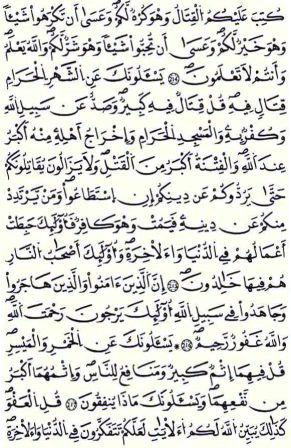 كُتِبَ عَلَيْكُمُ الْقِتَالُ وَهُوَ كُرْهٌ لَّكُمْ وَعَسَىٰ أَن تَكْرَهُوا شَيْـًٔا
وَهُوَ خَيْرٌ لَّكُمْ وَعَسَىٰ أَن تُحِبُّوا شَيْـًٔا وَهُوَ شَرٌّ لَّكُمْ وَاللَّهُ يَعْلَمُ
وَأَنتُمْ لَا تَعْلَمُونَ يَسْـَٔلُونَكَ عَنِ الشَّهْرِ الْحَرَامِ
قِتَالٍ فِيهِ قُلْ قِتَالٌ فِيهِ كَبِيرٌ وَصَدٌّ عَن سَبِيلِ اللَّهِ
وَكُفْرٌ بِهِ وَالْمَسْجِدِ الْحَرَامِ وَإِخْرَاجُ أَهْلِهِ مِنْهُ أَكْبَرُ
عِندَ اللَّهِ وَالْفِتْنَةُ أَكْبَرُ مِنَ الْقَتْلِ وَلَا يَزَالُونَ يُقَاتِلُونَكُمْ
حَتَّىٰ يَرُدُّوكُمْ عَن دِينِكُمْ إِنِ اسْتَطَاعُوا وَمَن يَرْتَدِدْ
مِنكُمْ عَن دِينِهِ فَيَمُتْ وَهُوَ كَافِرٌ فَأُولَٰئِكَ حَبِطَتْ
أَعْمَالُهُمْ فِي الدُّنْيَا وَالْآخِرَةِ وَأُولَٰئِكَ أَصْحَابُ النَّارِ
هُمْ فِيهَا خَالِدُونَ إِنَّ الَّذِينَ ءَامَنُوا وَالَّذِينَ هَاجَرُوا
وَجَاهَدُوا فِي سَبِيلِ اللَّهِ أُولَٰئِكَ يَرْجُونَ رَحْمَتَ اللَّهِ
وَاللَّهُ غَفُورٌ رَّحِيمٌ يَسْـَٔلُونَكَ عَنِ الْخَمْرِ وَالْمَيْسِرِ
قُلْ فِيهِمَا إِثْمٌ كَبِيرٌ وَمَنَافِعُ لِلنَّاسِ وَإِثْمُهُمَا أَكْبَرُ
مِن نَّفْعِهِمَا وَيَسْـَٔلُونَكَ مَاذَا يُنفِقُونَ قُلِ الْعَفْوَ
كَذَٰلِكَ يُبَيِّنُ اللَّهُ لَكُمُ الْآيَاتِ لَعَلَّكُمْ تَتَفَكَّرُونَ فِي الدُّنْيَا وَالْآخِرَةِ